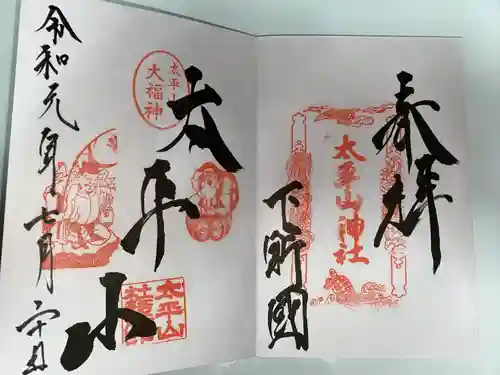 奉拝
太平山神社
下野國
太平山
太平山
大福神
太平山
令和元年七月二十日